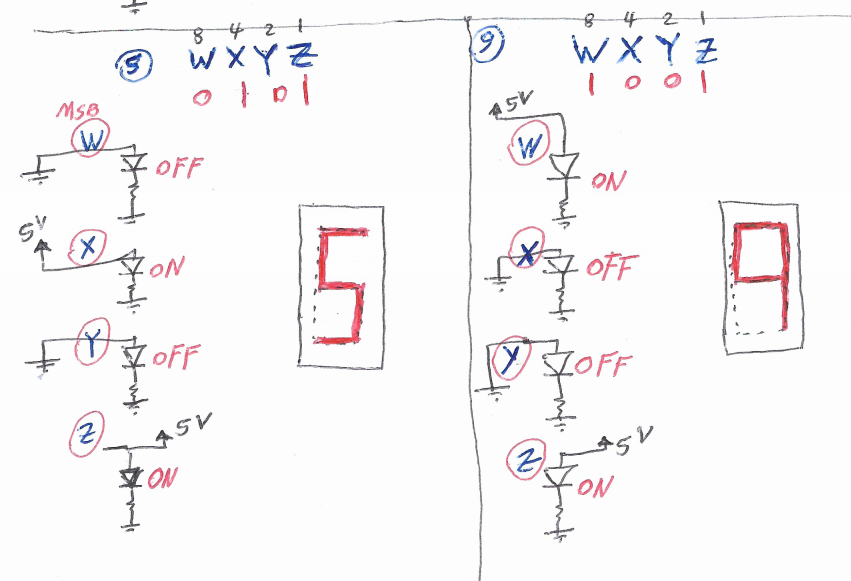 8 4 2 1
5 W X Y Z
0 1 0 1
MSB
W
OFF
5V
X
ON
Y
OFF
Z
5V
ON
5
8 4 2 1
9 W X Y Z
1 0 0 1
5V
W
ON
X
OFF
Y
OFF
Z
5V
ON
9